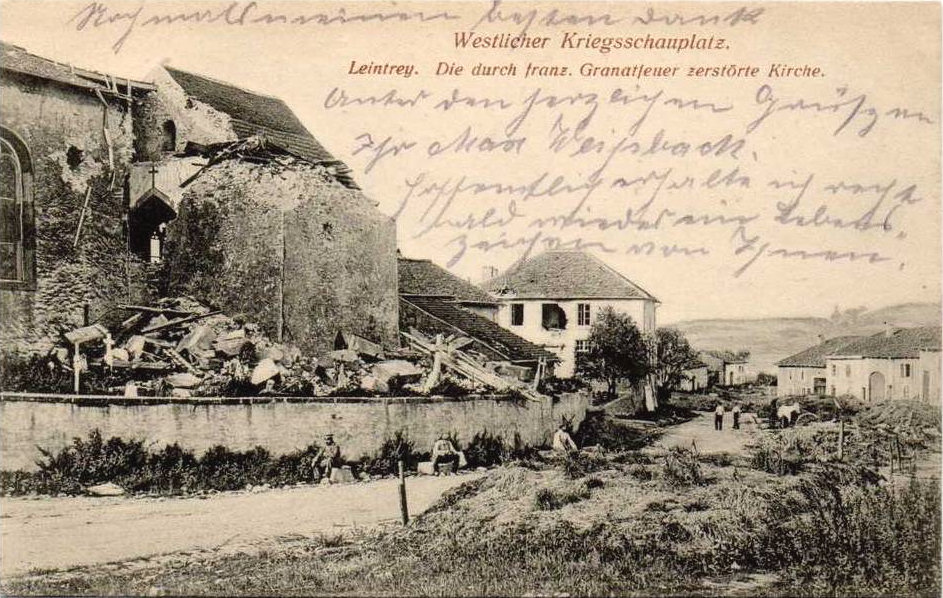 Nochmals meinen besten Dank
Westlicher Kriegsschauplatz.
Leintrey. Die durch franz. Granatfeuer zerstörte Kirche.
Unter den herzlichen Grüßen
Ihr Max Weisback.
Hoffentlich erhalte ich recht
bald wieder ein Lebens-
zeichen von Ihnen.